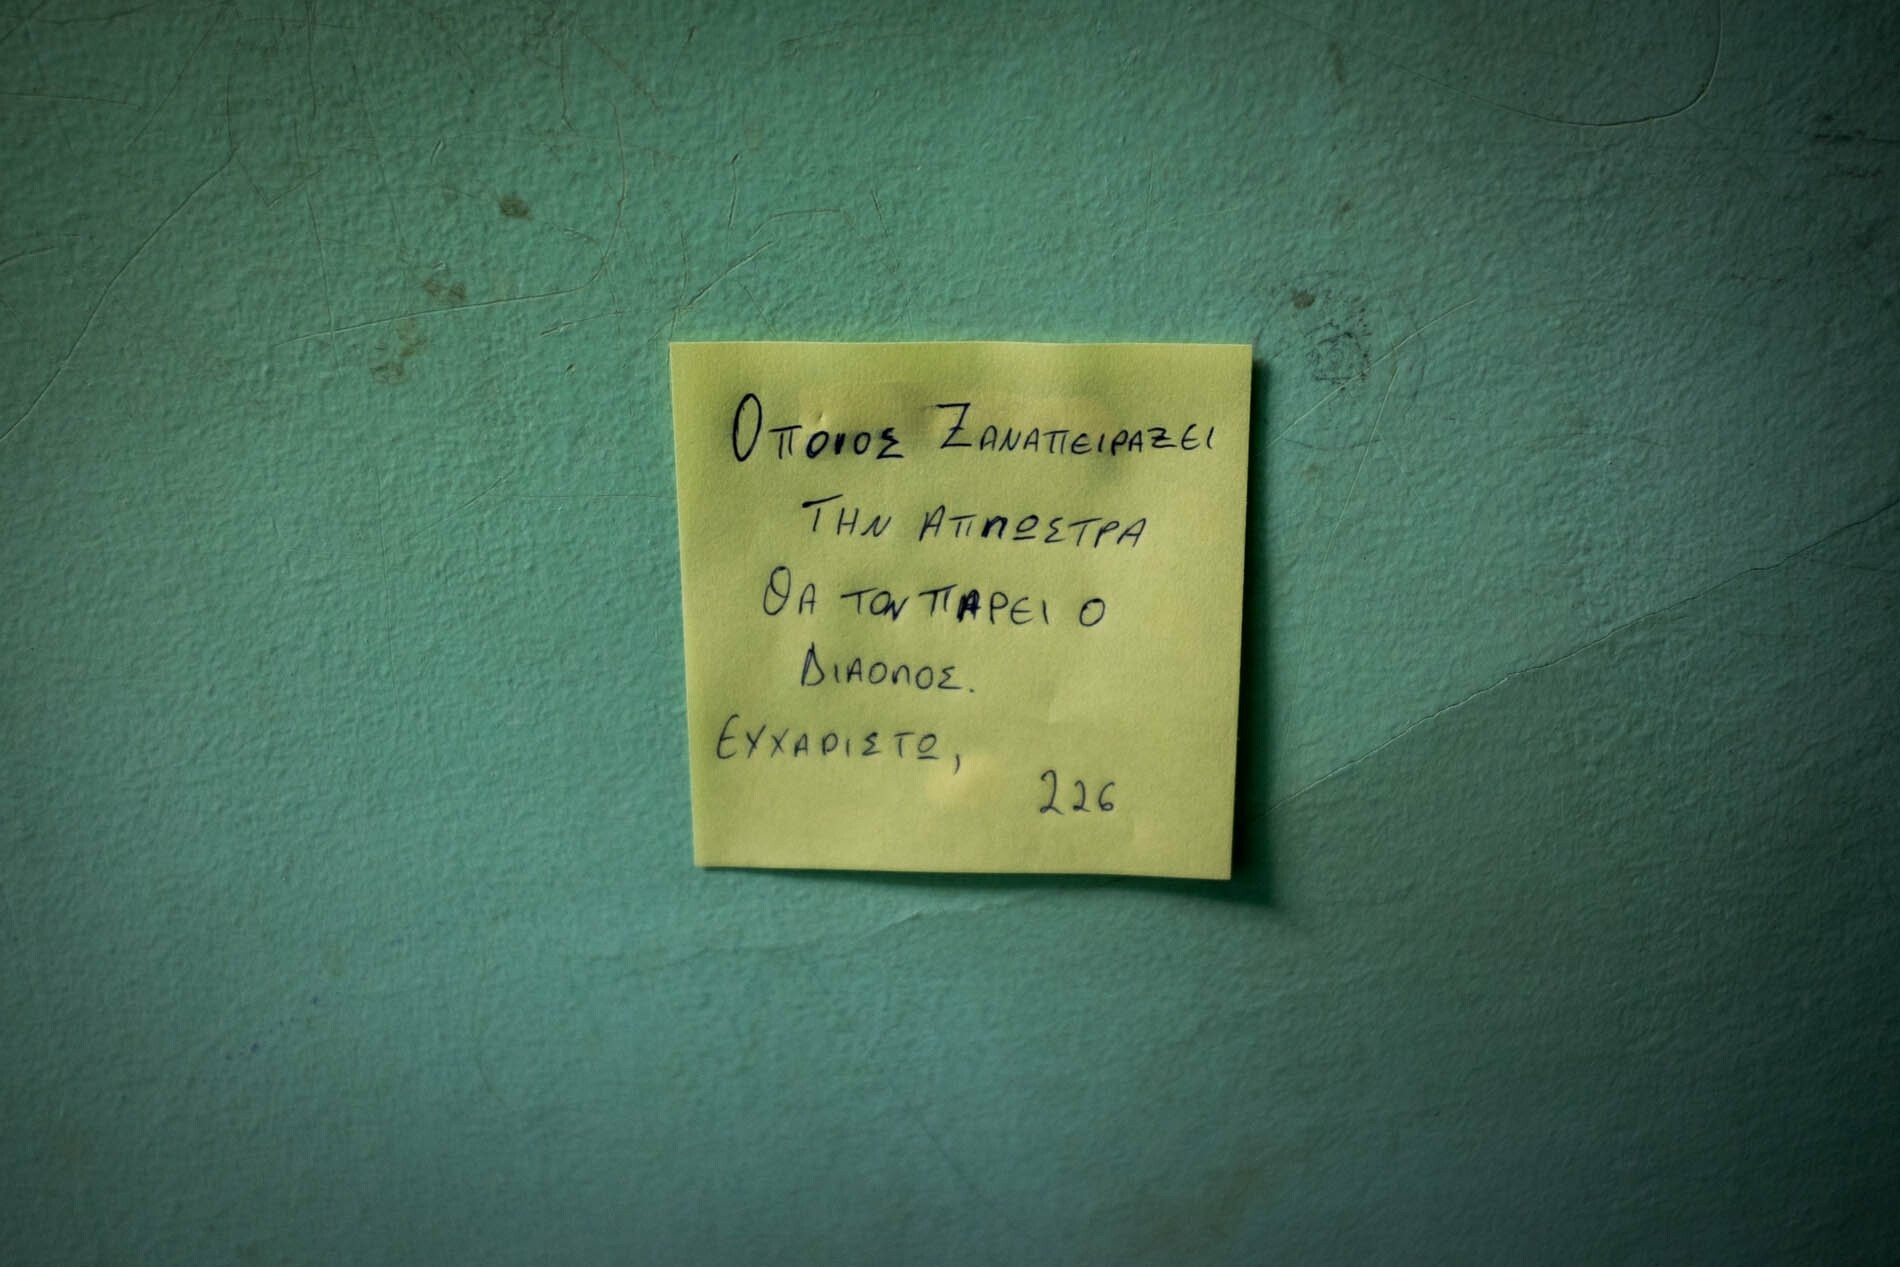 Οποιος Ξαναπειραξει
την απλωστρα
θα τον παρει ο
Διαολος.
Ευχαριστω,
226